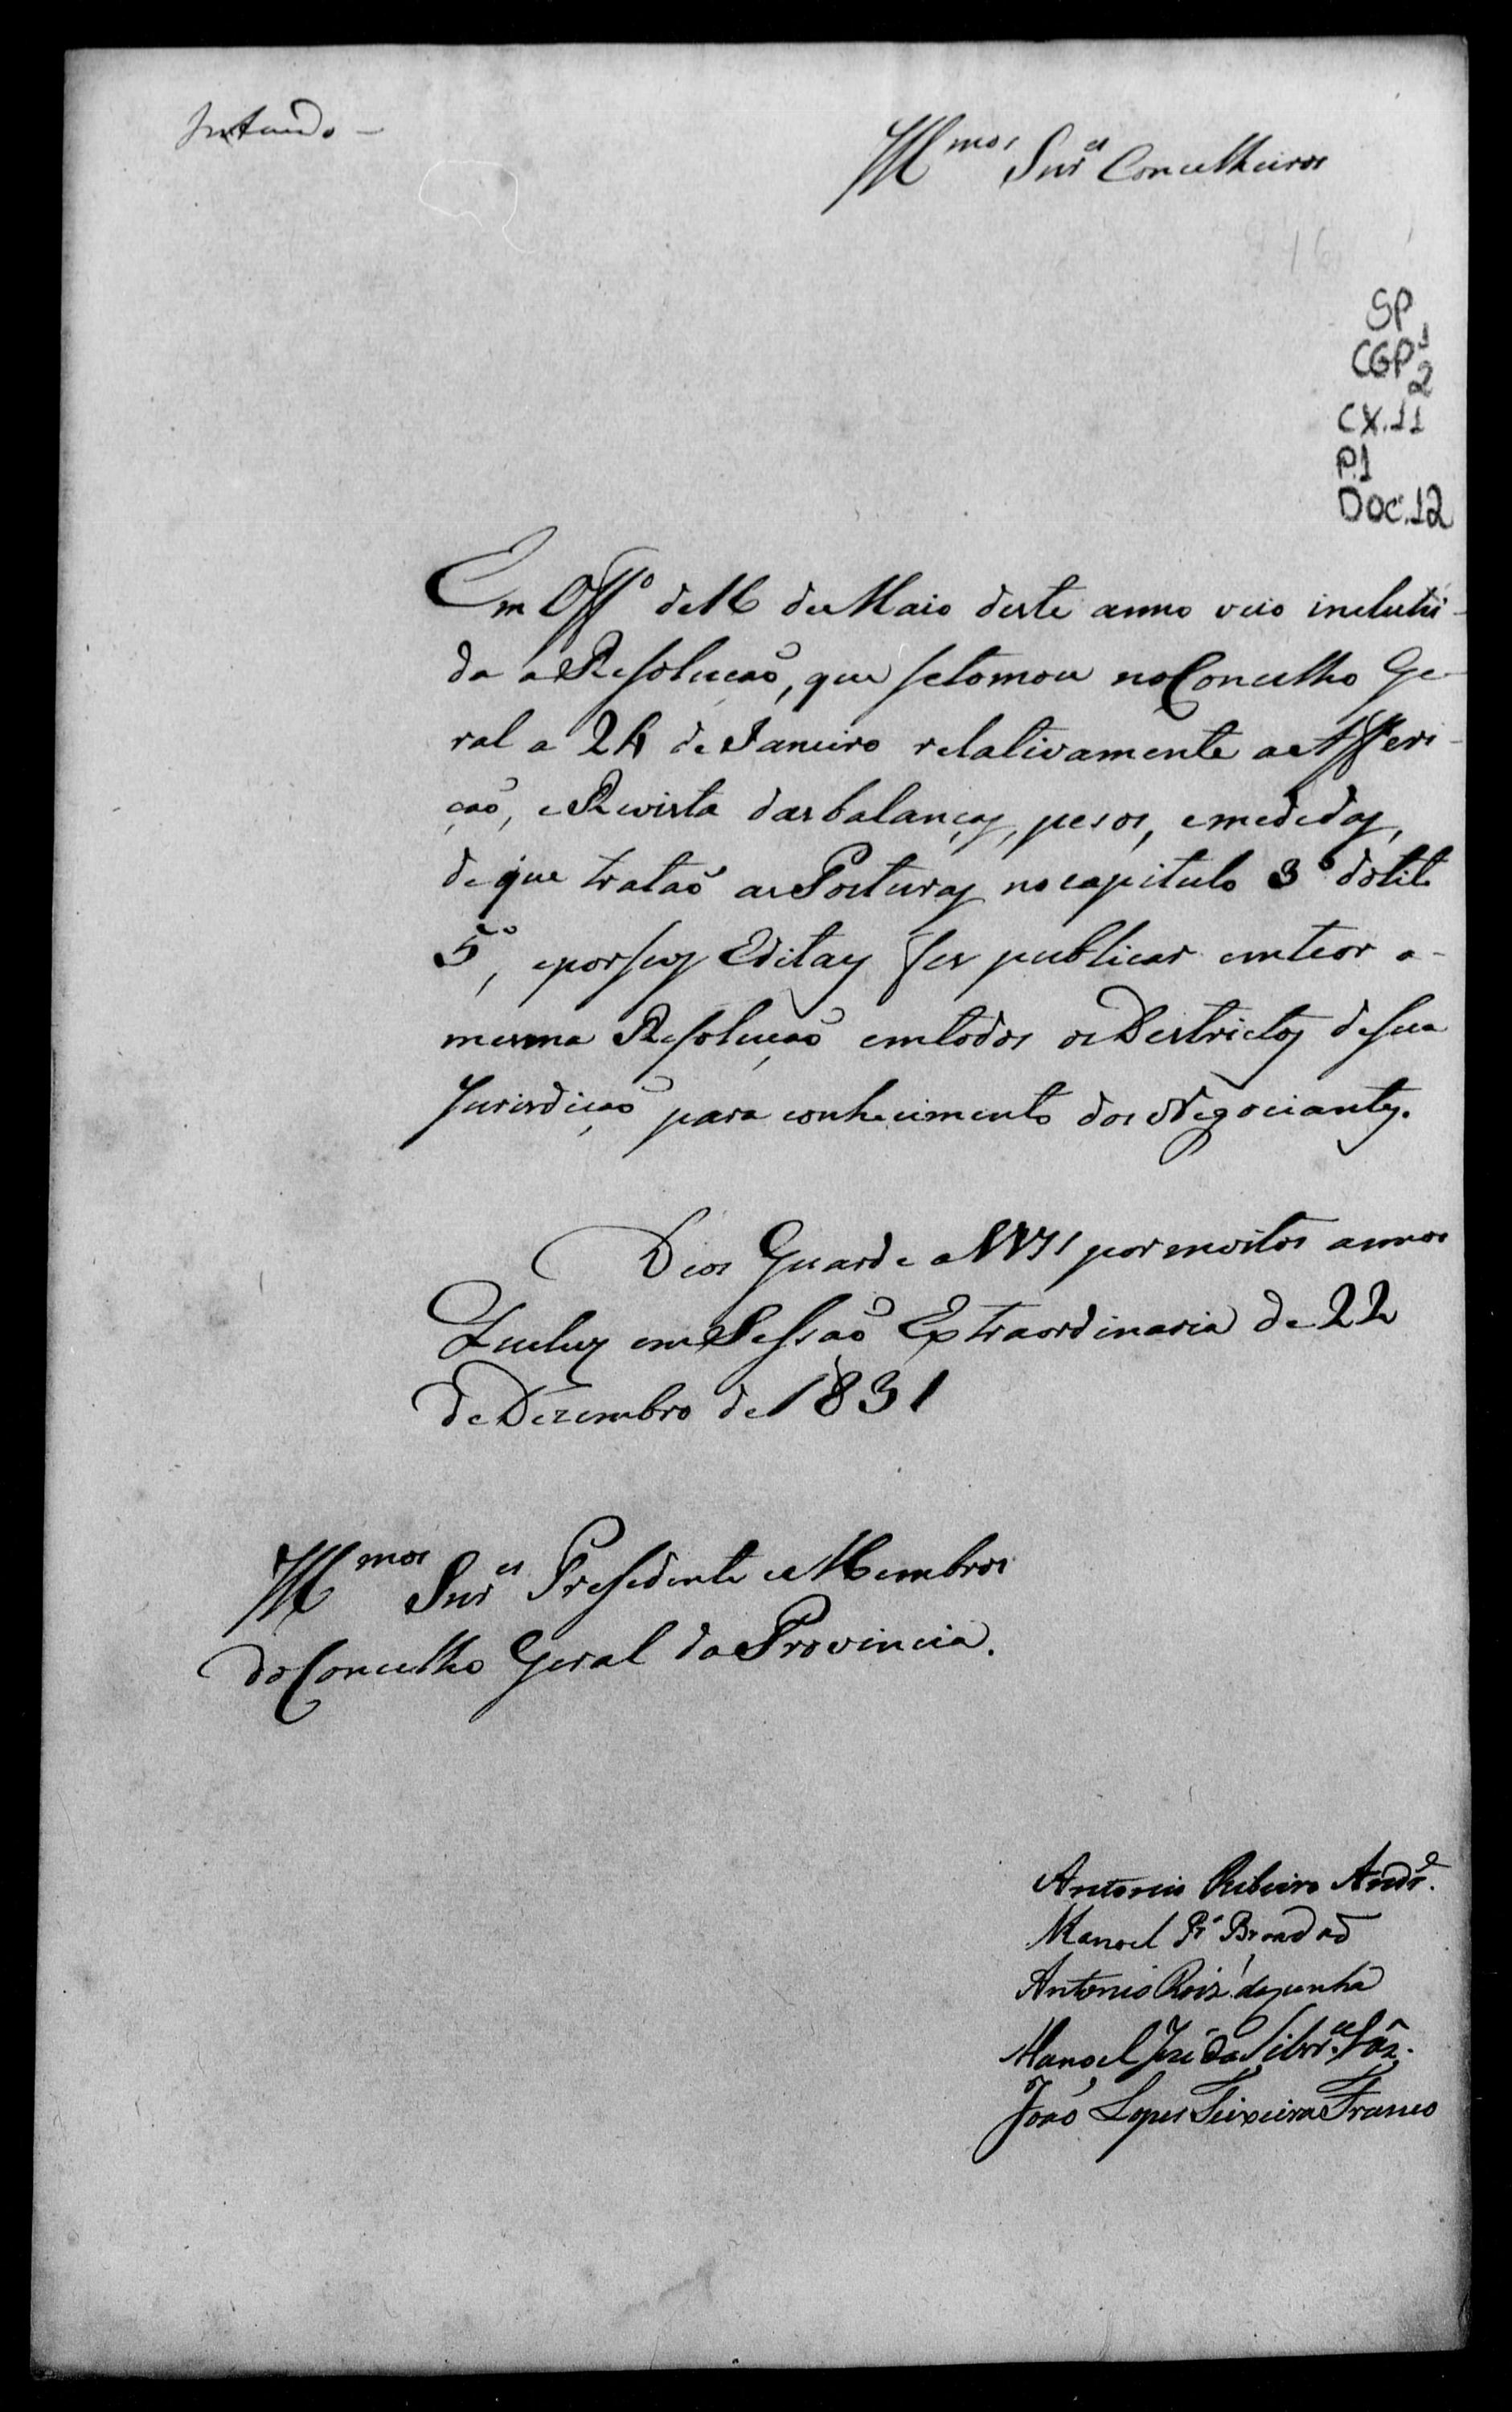 Illmos Snres Concelheiros
SP
CGP1
2
CX.11
P.1
DOC.12
Em Offo de 16 de Maio deste anno veio inclui-
da a Resolução, que se tomou no Concelho Ge-
ral a 24 de Janeiro relativamente a Afferi-
ção, e Revista das balanças, pesos, e medidas,
de que tratão as Posturas no capitulo 3º do tit.
5º, e por seus Editaes fes publicar em teor a
mesma Resolução em todos os Destrictos de sua
Jurisdição para conhecimento dos Negociantes.
Deos Guarde a VVSS por muitos annos
Queluz em Sessão Extraordinaria de 22
de Dezembro de 1831
Illmos Snres Presidente e Membros
do Concelho Geral da Provincia.
Antonio Ribeiro Andre.
Manoel Pra Brandão
Antonio Roiz da Cunha
Manoel José da Silvra
João Lopes Teixeira Franco